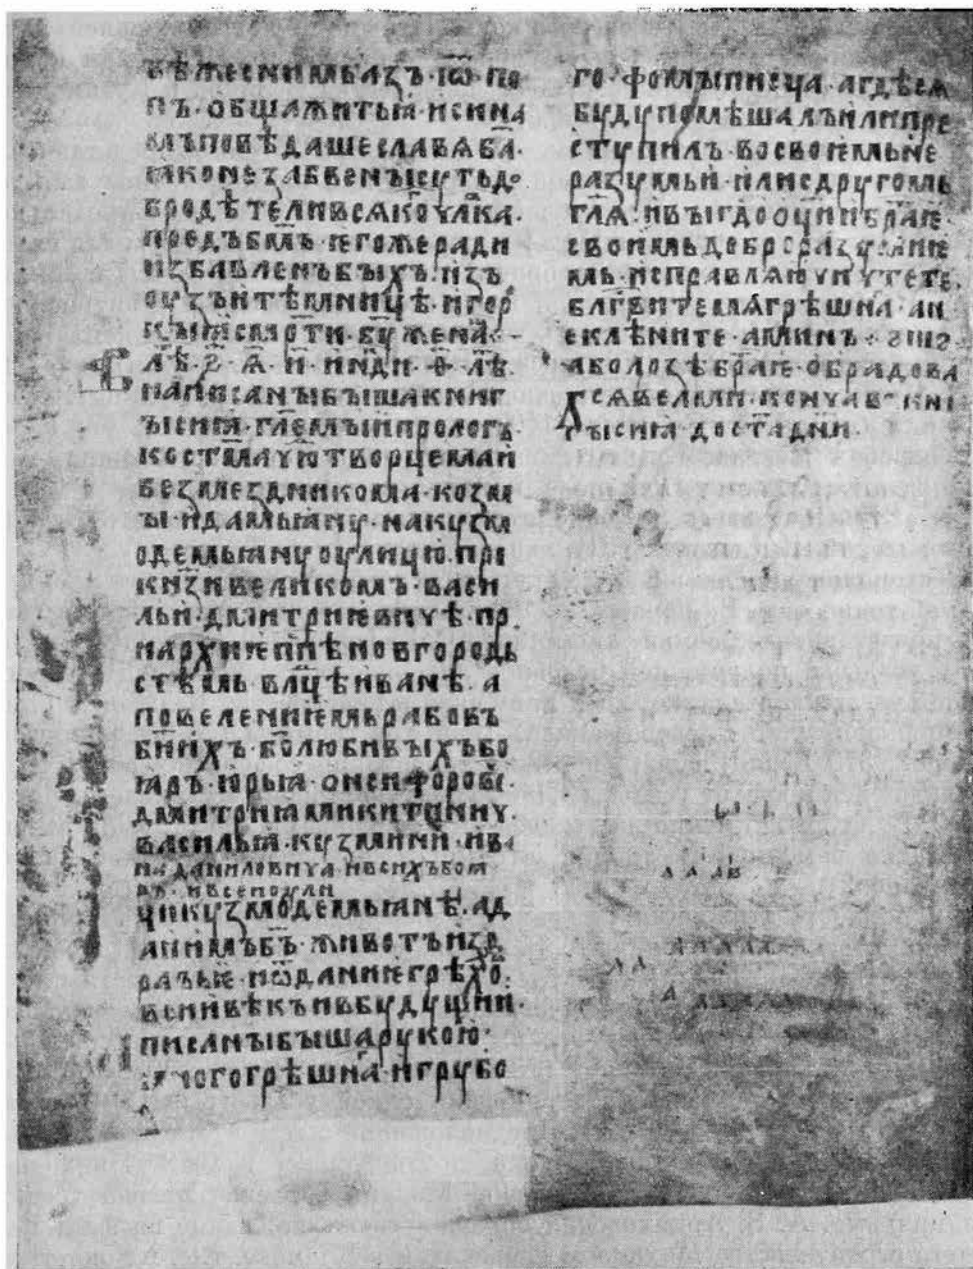 вѣжеснимьазъ·іѡ҃·по
пъ·обьщажитыꙗ·исима
мъповѣдашеславѧба҃·
ꙗконезабвенъисутьдо
бродѣтеливсѧкоч҃лка·
предъбм҃ъ·негожеради
избавленъбыхъ·изъ
оузъитѣмницѣ·игор
кыꙗсмр҃ти·
в лѣ҃·҂ѕ҃·ѡ҃·и҃·инди·ѳ҃·лѣ҃·
написаныбышакниг
ысиꙗ·гл҃емыипрологъ
костм҃ачютворцемаи
безмездникома·козм
ы·идамьꙗну·накузм
одемьꙗнуоулицю·при
кнѧзивеликомъ·васи
льи·дмитриевичѣ·пр
иархиеппѣновгородь
стѣмь·влц҃ѣиванѣ·а
повелениемьрабовъ
бж҃иихъ·бо҃любивыхъбо
ꙗръ·юрьꙗ·онсифорови҃·
дмитриꙗмикитинич·
васильꙗ·кузминич҃·ива
наданиловича·ивсихъбоꙗ
ръ·ивсеиоули
цикузмодемьꙗнѣ·ад
аиимъбъ҃·животъизд
равье·иѿданиегрѣхо҃въ·
всиивѣкъивбудущии·
писаныбышарукою·
многогрѣшна҃·игрубо
го·фомыписца·агдѣсѧ
будупомѣшалъилипре
ступилъ·восвоемьне
разумьи·илисдругомь
гл҃ѧ·ивыгдоо҃циибрат҃е·
своимьдобрсразумие
мь·исправлѧючичтете·
блг҃витемѧгрѣшна҃·ан
екленѣте·аминь·
ꙗколозѣбрат҃е·обрадова
хсѧвелми·кончав·кни
гысиꙗ·достадни·